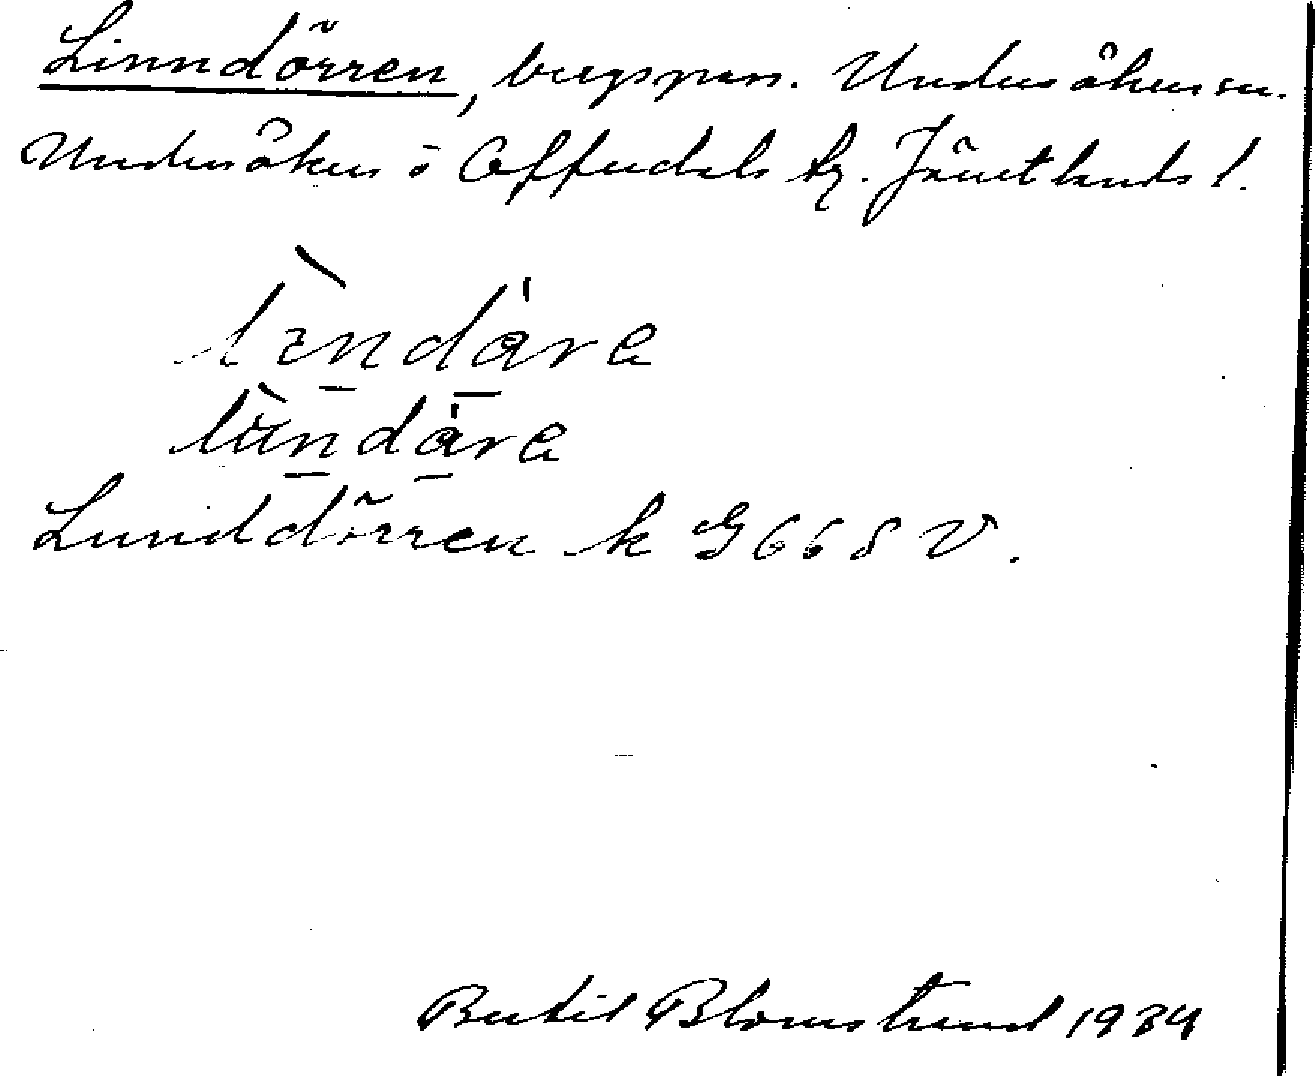 Linndörren, bergspass. Undersåkers sn.
Undersåkers o Offerdals tg. Jämtlands l.
lìndȧre
lùndȧre
Lunddörren k G 668 V.
Bertil Blomstrand 1934